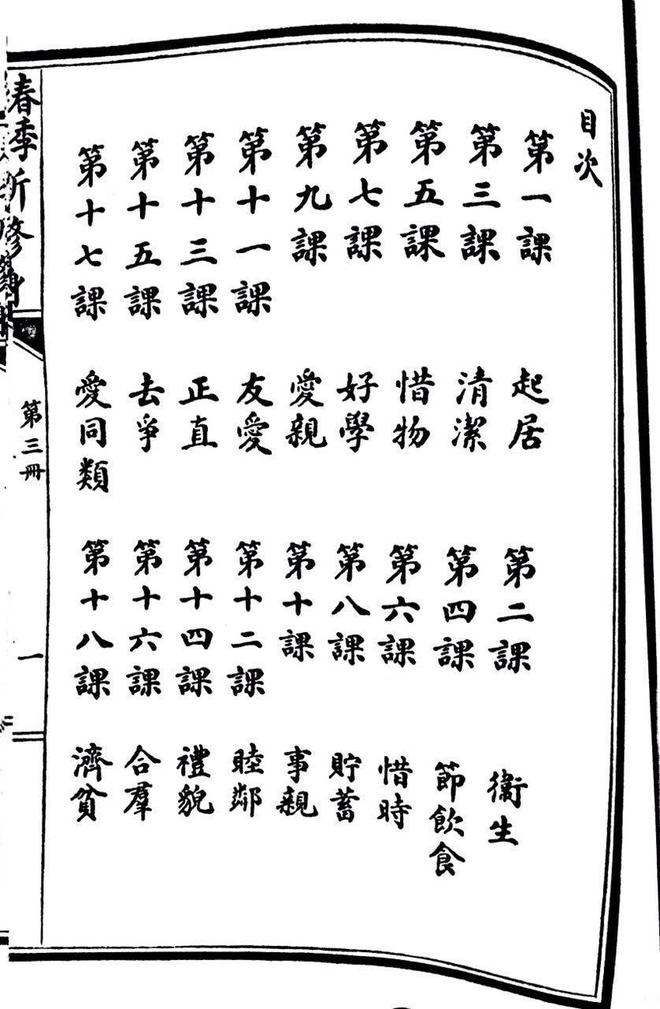 目次
第一課　起居　第二課　衛生
第三課　清潔　第四課　節飲食
第五課　惜物　第六課　惜時
第七課　好學　第八課　貯蓄
第九課　愛親　第十課　事親
第十一課　友愛　第十二課　睦鄰
第十三課　正直　第十四課　禮貌
第十五課　去爭　第十六課　合羣
第十七課　愛同類　第十八課　濟貧
春季新修
第三冊
一